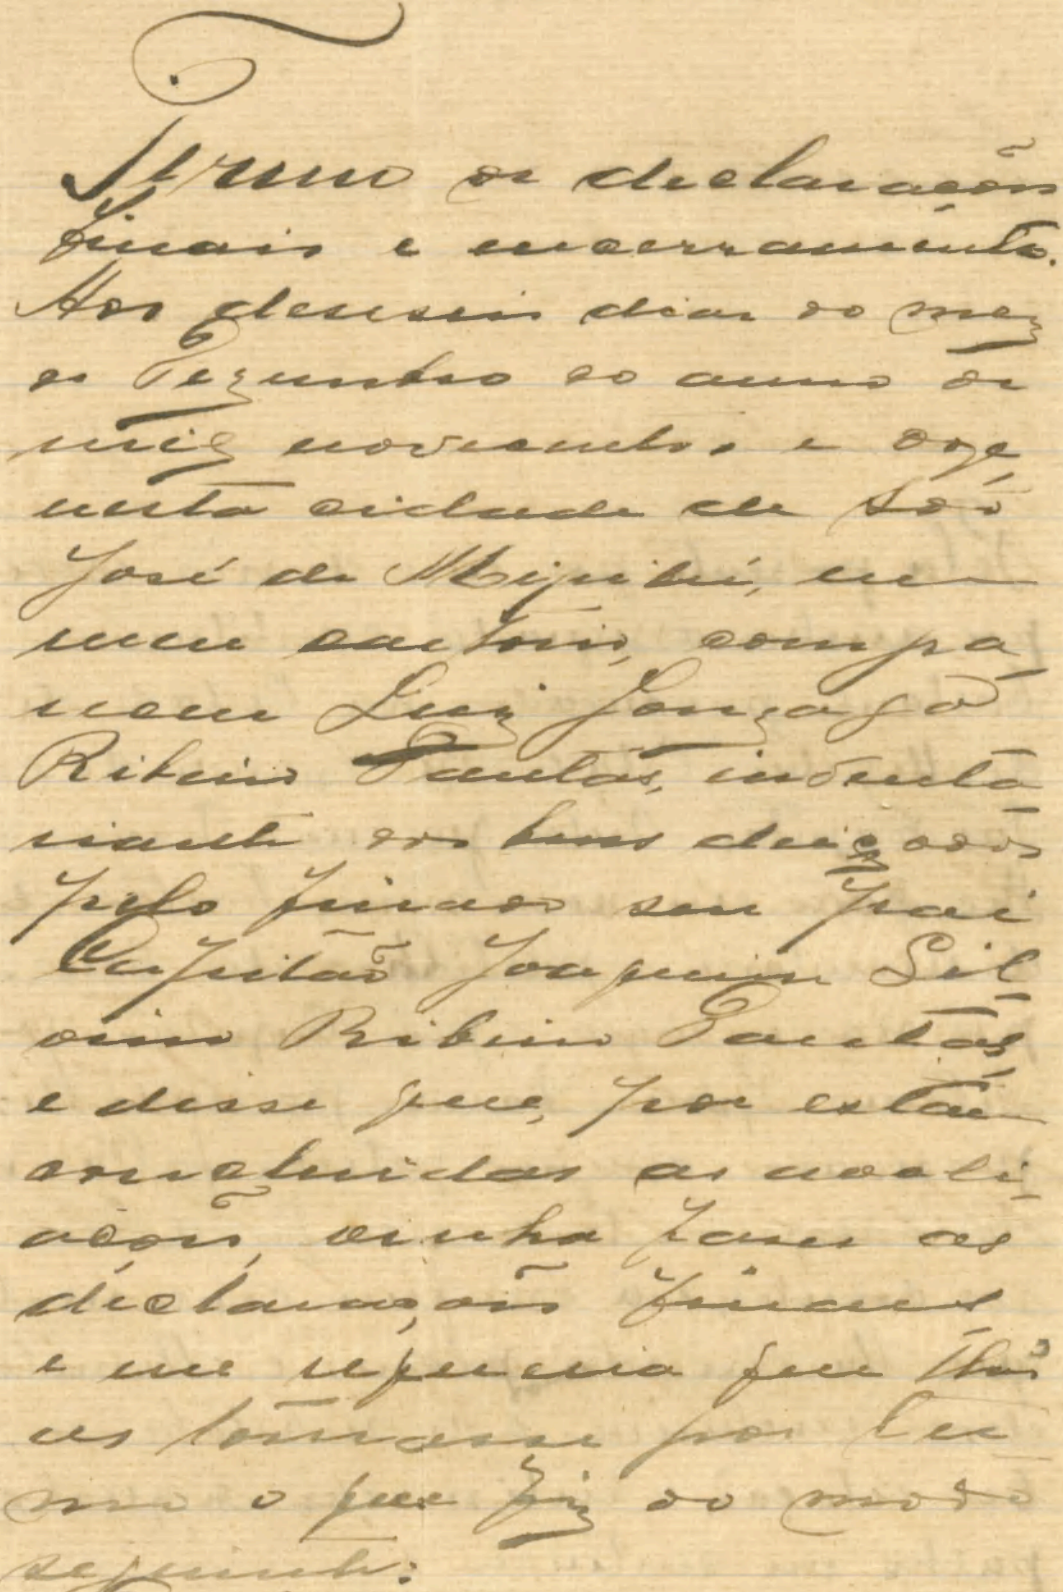 Termo de declarações
finais e encerramento.
Aos deseseis dias do mez
de Dezembro do anno de
mil novecentos e doze,
nesta cidade de São
José de Mipibú, em
meu cartorio, compa-
receu Luiz Gonzaga
Ribeiro Dantas, inventa-
riante dos bens deixados
pelo finado seu pai
Capitão Joaquim Sil-
vino Ribeiro Dantas,
e disse que, por estarem
concluidas as avali-
ações, vinha fazer as
declarações finaes
e me requeria que lhas
as tomasse por ter-
mo o que fiz do modo
seguinte: